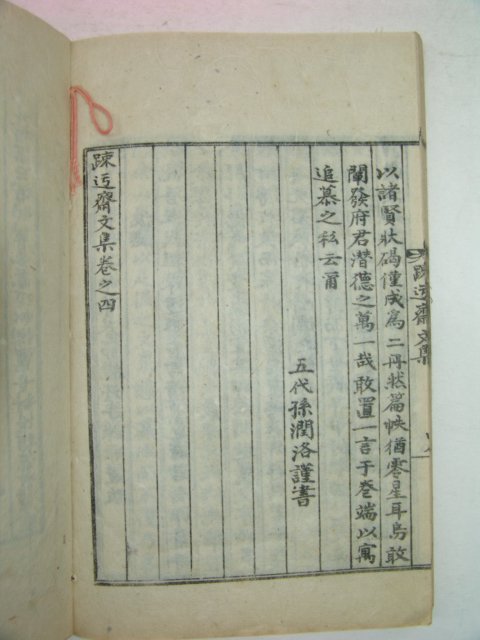 以諸賢狀碣僅成爲二冊然篇帙猶零星耳烏敢
闡發府君潜德之萬一哉敢置一言于卷端以寓
追慕之私云甭
五代孫潤洛謹書
踈迃齋文集卷之四
踈迃齋文集